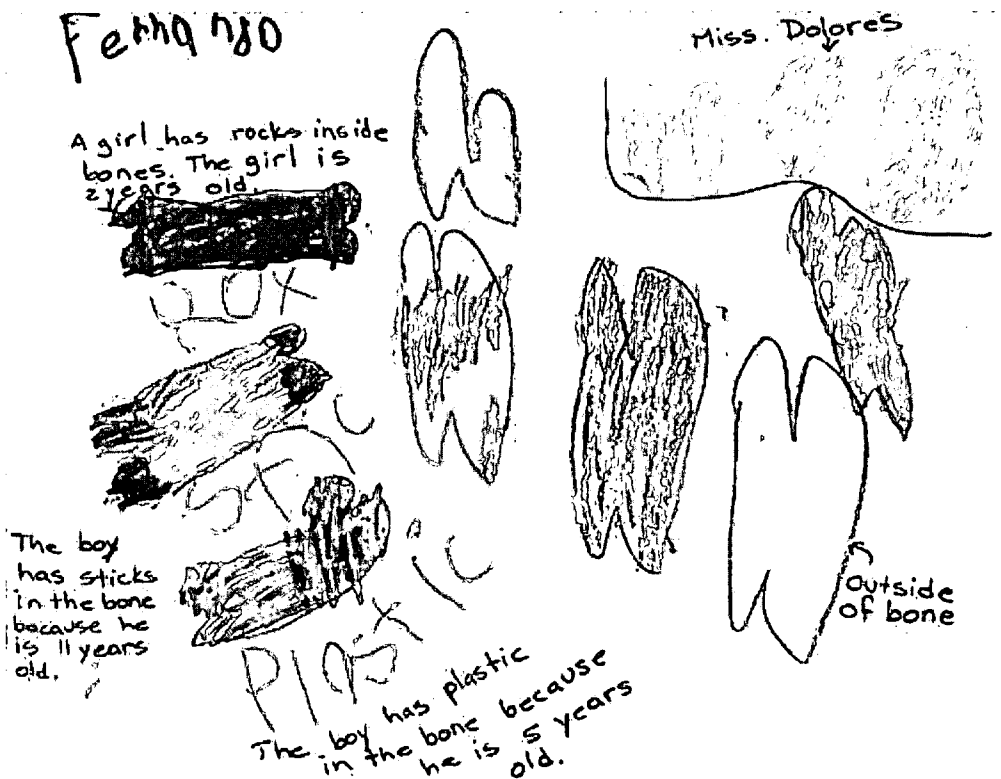 Fernando
Miss. Dolores
A girl has rocks inside
bones. The girl is
2 years old.
STIC
The boy
has sticks
in the bone
because he
is 11 years
old.
Plastic
The boy has plastic
in the bone because
he is 5 years
old.
Outside
of bone